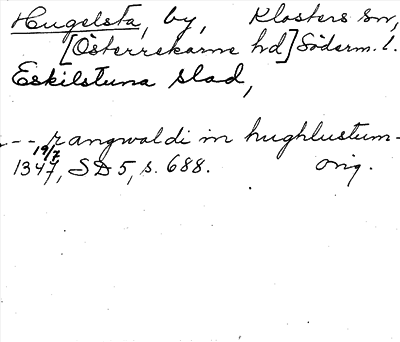 Hugelsta, by, Klosters sn,
[Österrekarne hd] Söderm. l.
Eskilstuna stad,
- - - rangwaldi in hughlustum -
19/7
1347, SD 5, s. 688. Orig.